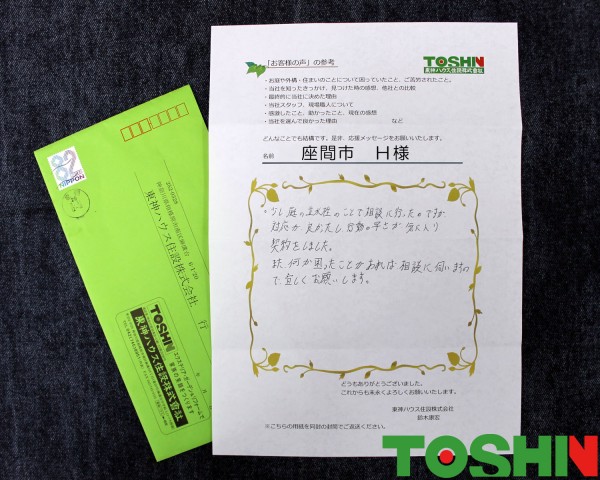 「お客様の声」の参考
TOSHIN
東神ハウス住設株式会社
・お庭や外構・住まいのことについて困っていたこと、ご苦労されたこと。
・当社を知ったきっかけ、見つけた時の感想、他社との比較
・最終的に当社に決めた理由
・当社スタッフ、現場職人について
・感激したこと、助かったこと、現在の感想
・当社を選んで良かった理由 など
どんなことでも結構です。是非、応援メッセージをお願いいたします。
名前 座間市 H様
・少し庭の立水栓のことで相談に行ったのですが
対応が良かったし行動の早さが気に入り
契約をしました。
又、何か困ったことがあれば相談に伺いますの
で、宜しくお願いします。
どうもありがとうございました。
これからも末永くよろしくお願いいたします。
東神ハウス住設株式会社
鈴木康宏
※こちらの用紙を同封の封筒でご返送ください。
82
NIPPON
東神ハウス住設株式会社 行
TOSHIN
エクステリア・ガーデン&リフォームで
東神ハウス住設株式会社
TOSHIN